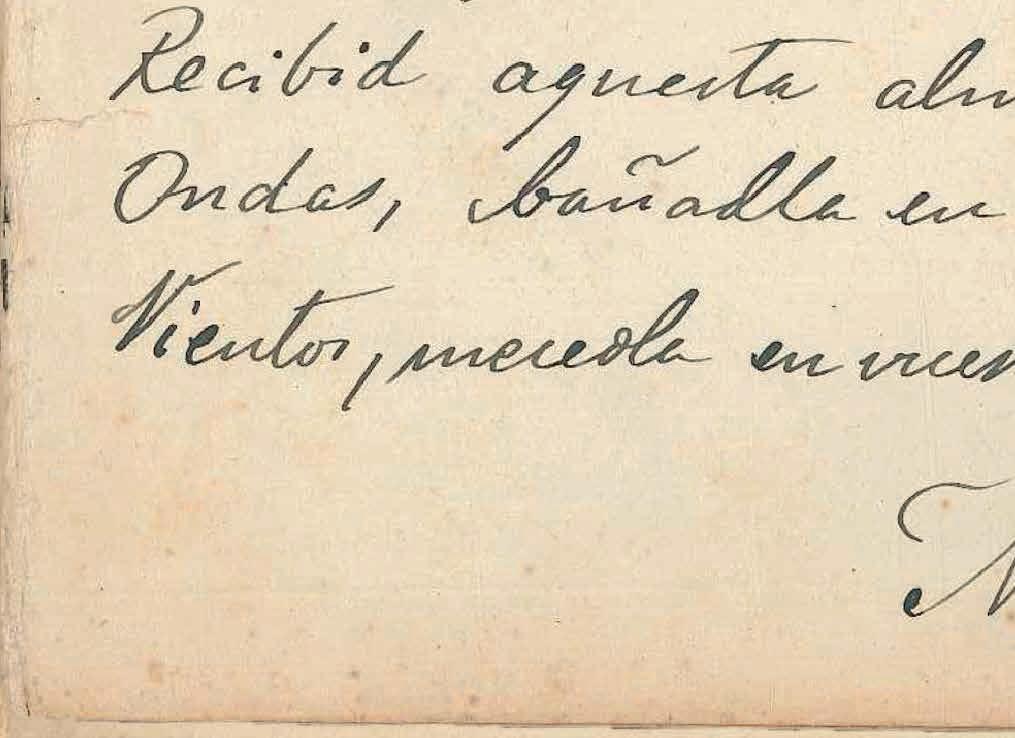 Recibid aquesta alm
Ondas, bañadla en
Vientos, mecedla en vues